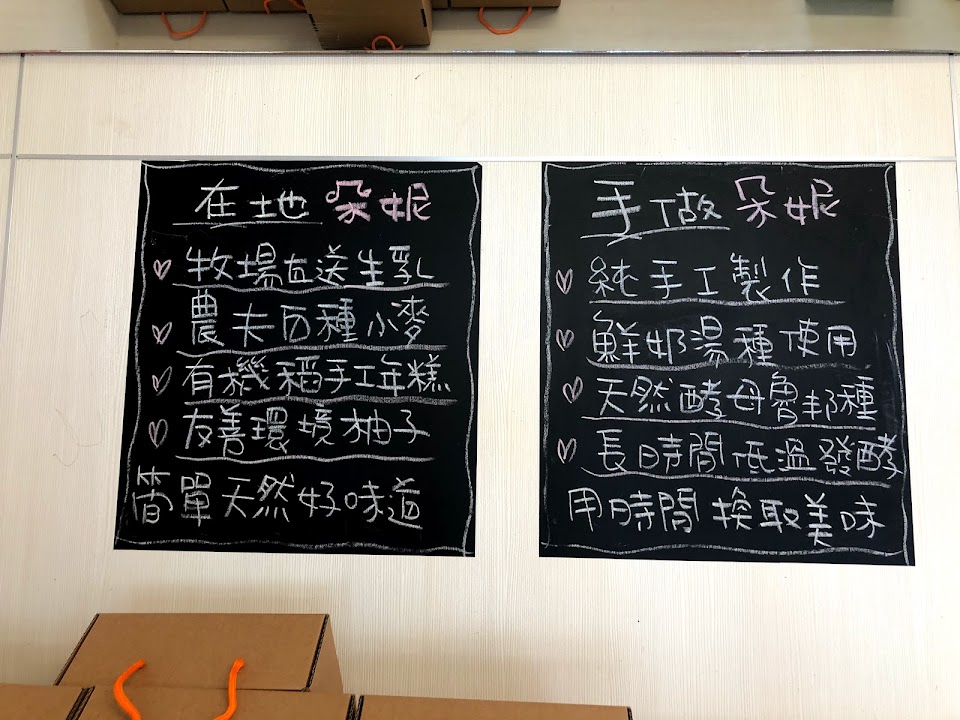 在地 朵妮
牧場直送生乳
農夫百種小麥
有機稻手工年糕
友善環境柚子
簡單天然好味道
手工做 朵妮
純手工製作
鮮奶湯種使用
天然酵母魯邦種
長時間低溫發酵
用時間換取美味